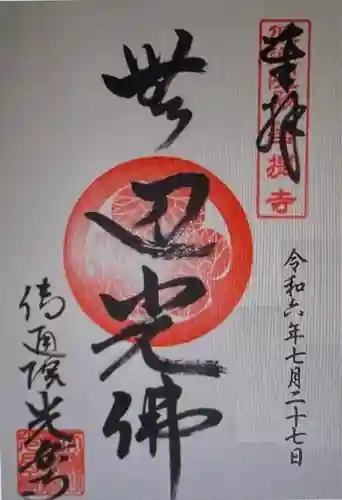 奉拝
無辺光佛
令和六年七月二十七日
傳通院光岳寺